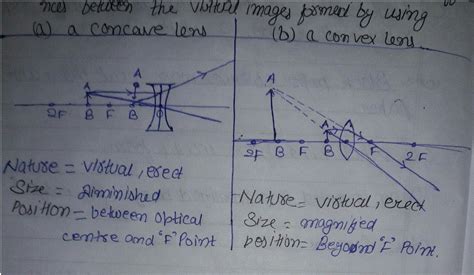 nces between the virtual images formed by using
(a) a concave lens
(b) a convex lens
A A
2F B F B
Nature = virtual, erect
Size = Diminished
Position = between optical
centre and "F" Point
A
A
2F B F B F 2F
Nature = virtual, erect
Size = magnified
position = Beyond "F" Point.